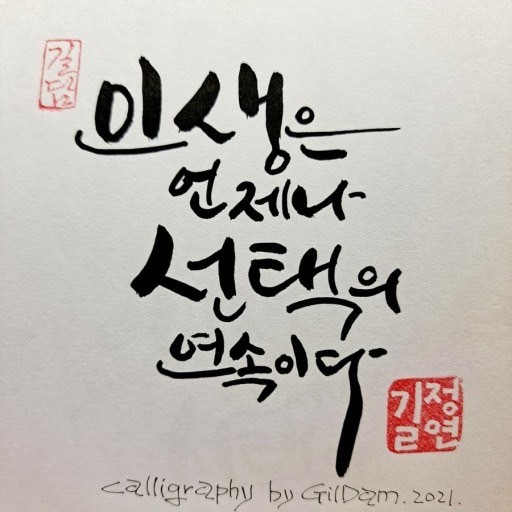 길담
인생은
언제나
선택의
연속이다
길정연
calligraphy by GilDam. 2021.